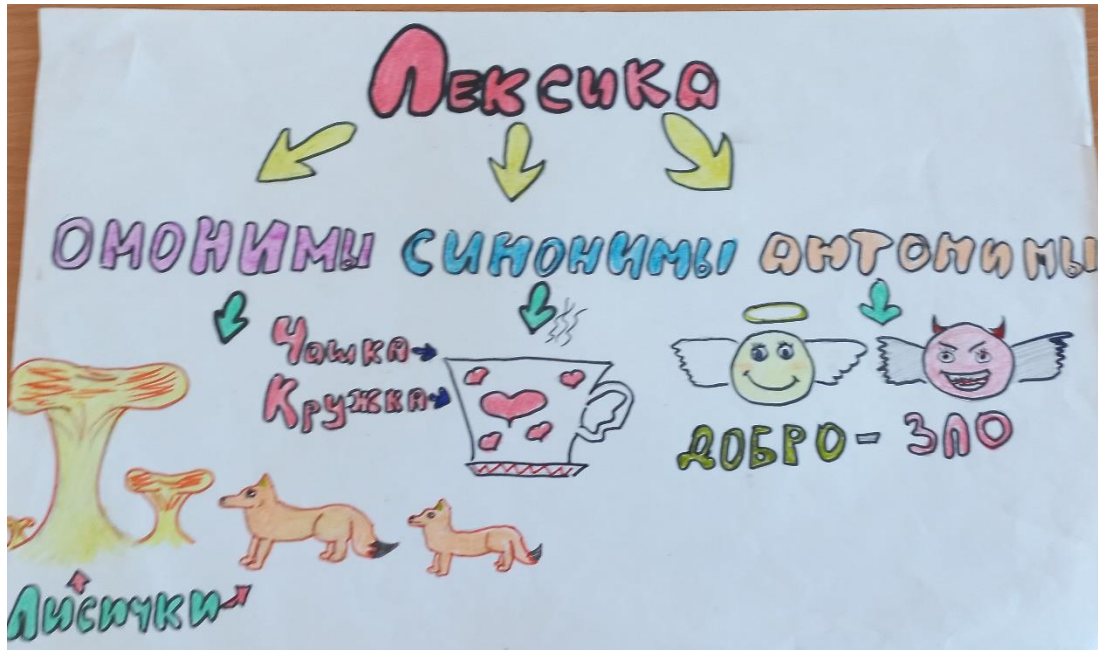 Лексика
ОМОНИМЫ СИНОНИМЫ АНТОНИМЫ
Чашка
Кружка
ДОБРО - ЗЛО
Лисички